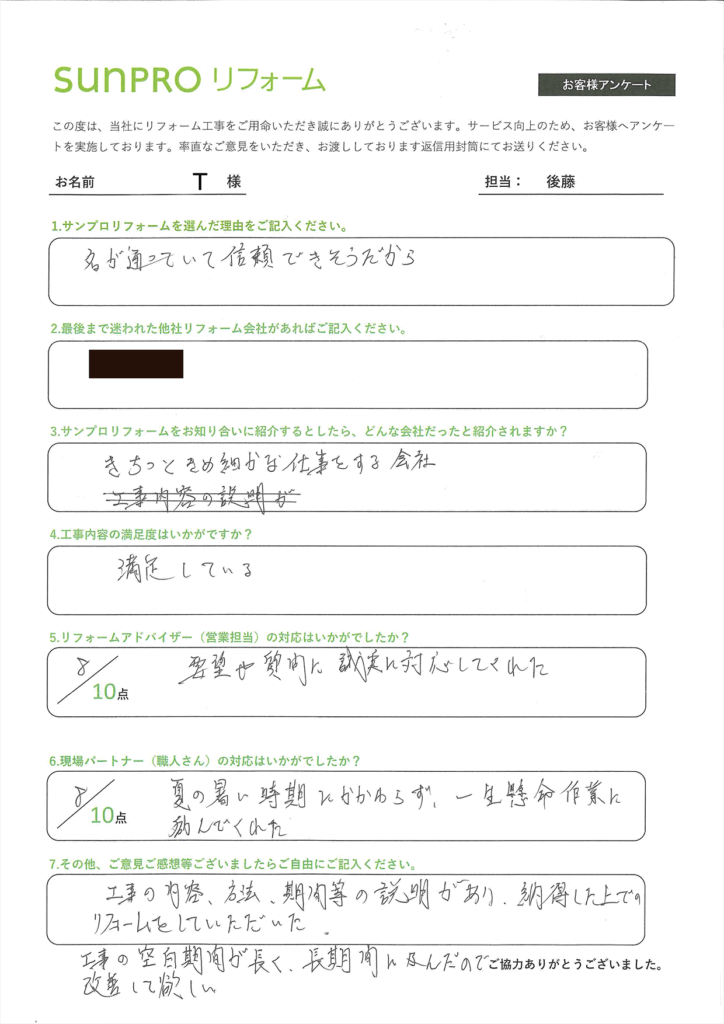 SUNPRO リフォーム
お客様アンケート
この度は、当社にリフォーム工事をご用命いただき誠にありがとうございます。サービス向上のため、お客様へアンケー
トを実施しております。率直なご意見をいただき、お渡ししております返信用封筒にてお送りください。
お名前 T 様 担当： 後藤
1.サンプロリフォームを選んだ理由をご記入ください。
名が通っていて信頼できそうだから
2.最後まで迷われた他社リフォーム会社があればご記入ください。
3.サンプロリフォームをお知り合いに紹介するとしたら、どんな会社だったと紹介されますか？
きちっときめ細かな仕事をする会社
工事内容の説明が
4.工事内容の満足度はいかがですか？
満足している
5.リフォームアドバイザー（営業担当）の対応はいかがでしたか？
8/10点 要望や質問に誠実に対応してくれた
6.現場パートナー（職人さん）の対応はいかがでしたか？
8/10点 夏の暑い時期にかかわらず、一生懸命作業に
励んでくれた
7.その他、ご意見ご感想等ございましたらご自由にご記入ください。
工事の内容、方法、期間等の説明があり、納得した上での
リフォームをしていただいた。
工事の空白期間が長く、長期間に及んだので
改善して欲しい
ご協力ありがとうございました。